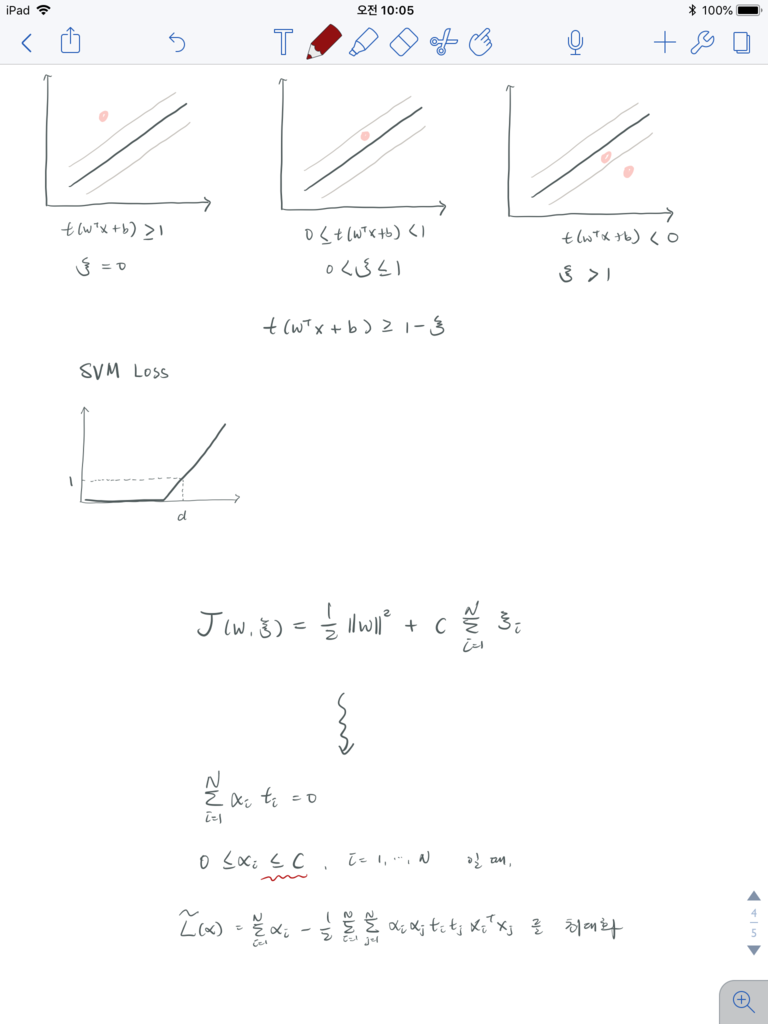 iPad 오전 10:05 100%
T
t(wᵀx+b) ≥ 1 0 ≤ t(wᵀx+b) < 1 t(wᵀx+b) < 0
ξ = 0 0 < ξ ≤ 1 ξ > 1
t(wᵀx+b) ≥ 1-ξ
SVM Loss
1
d
J(w,ξ) = 1/2 ||w||² + C Σ_{i=1}^{N} ξ_i
Σ_{i=1}^{N} α_i t_i = 0
0 ≤ α_i ≤ C, i = 1, ..., N 일 때,
L̃(α) = Σ_{i=1}^{N} α_i - 1/2 Σ_{i=1}^{N} Σ_{j=1}^{N} α_i α_j t_i t_j x_iᵀ x_j 를 최대화
4
5